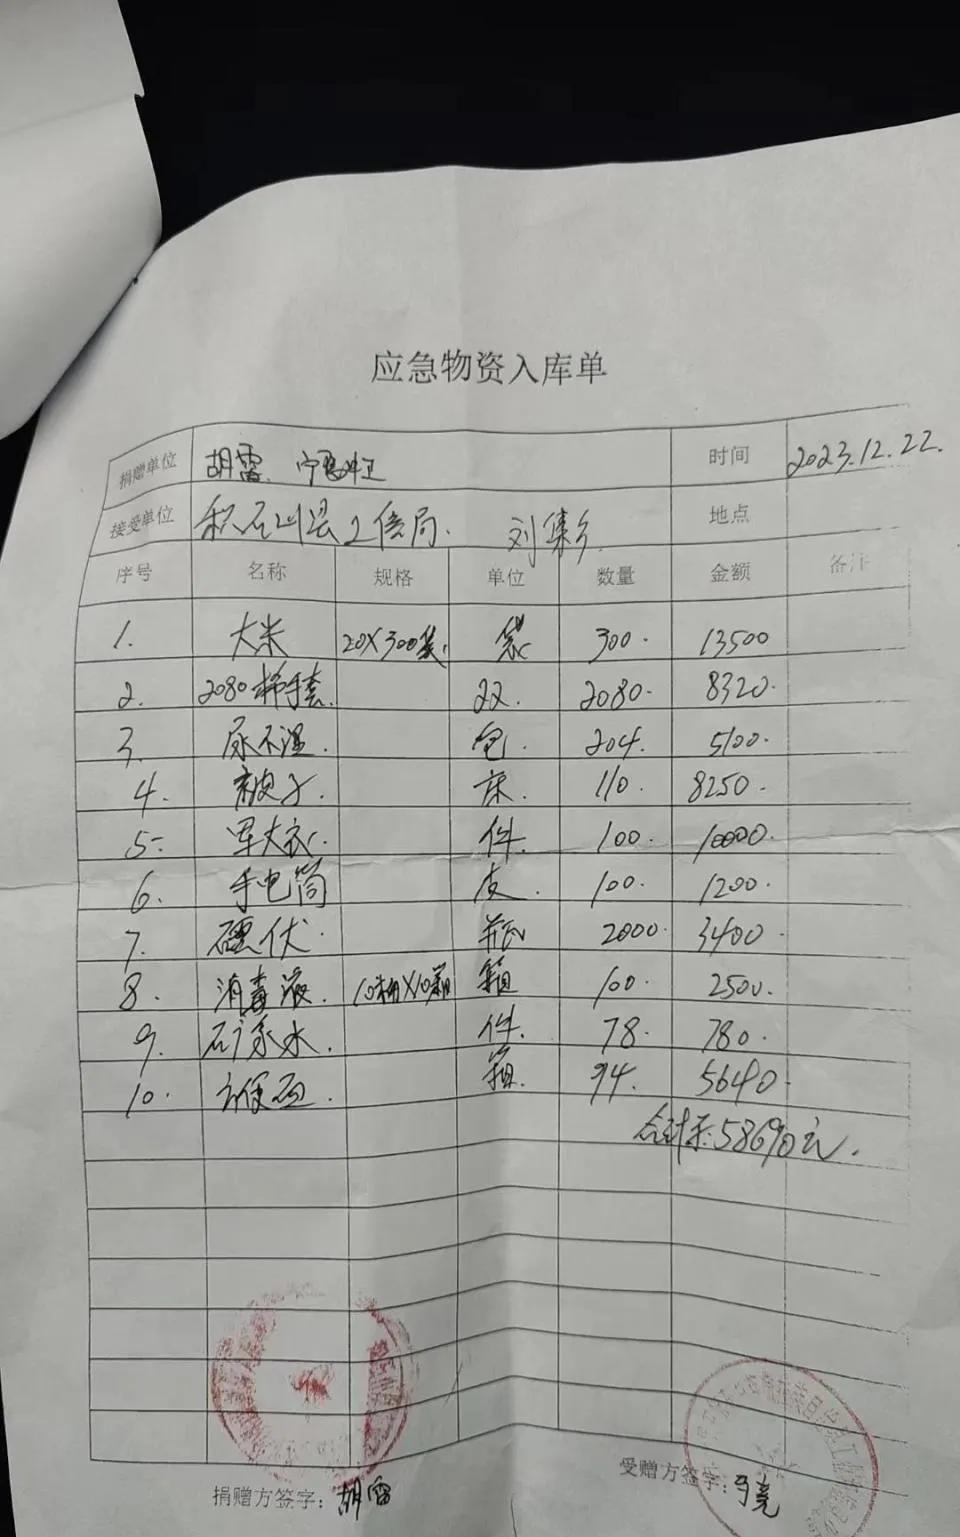 应急物资入库单
捐赠单位 胡雷、 时间 2023.12.22.
接受单位 积石山县工信局. 刘集乡 地点
序号 名称 规格 单位 数量 金额 备注
1. 大米 20X300袋. 袋 300. 13500
2. 2080棉手套. 双. 2080. 8320.
3. 尿不湿. 包. 204. 5100.
4. 被子. 床. 110. 8250.
5- 军大衣. 件. 100. 10000.
6. 手电筒 支. 100. 1200.
7. 碘伏. 瓶 2000. 3400.
8. 消毒液. 箱 100. 2500.
9. 矿泉水. 件. 78. 780.
10. 方便面. 箱. 94. 5640.
58690元.
捐赠方签字: 胡雷
受赠方签字: